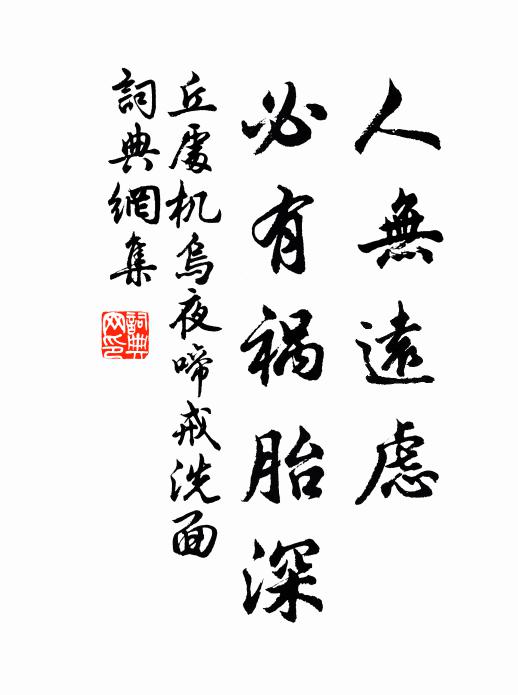 人無遠慮
必有禍胎深
丘處机烏夜啼戒洗面
詞典網集
詞典網印